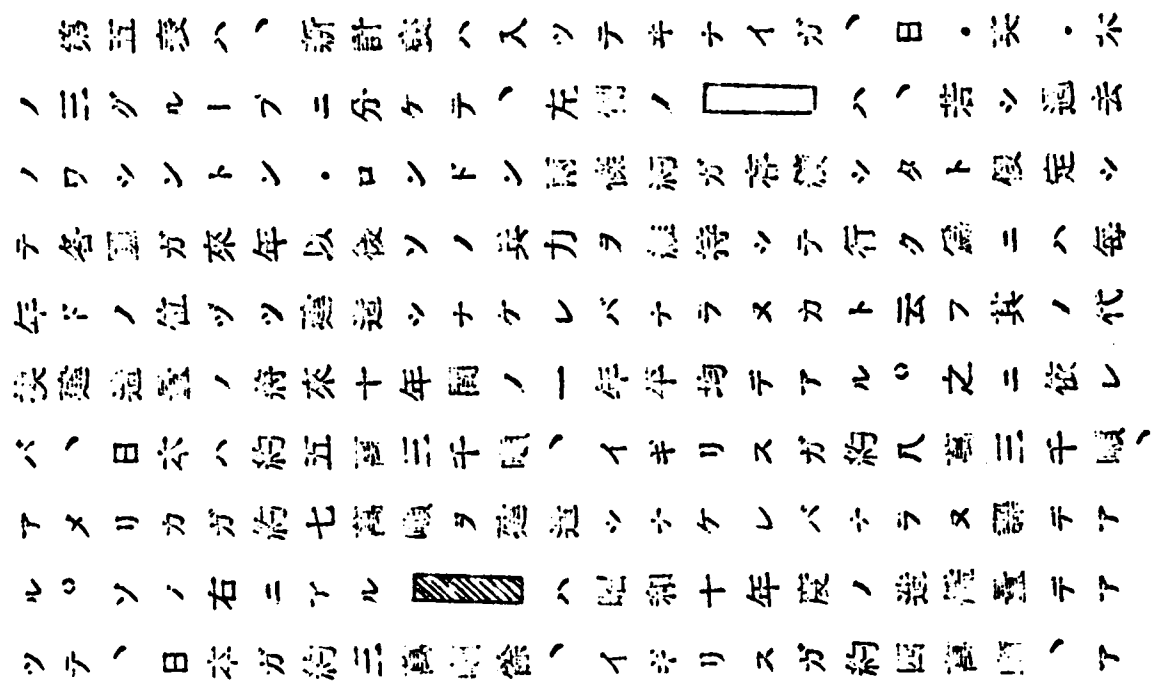 第五表ハ、新計畫ハ入ツテヰナイガ、日・英・米
ノ三グループニ分ケテ、左側ノ ハ、若シ過去
ノワシントン・ロンドン兩條約ガ若シタト假定シ
テ各國ガ來年以後ソノ兵力ヲ維持シテ行ク爲ニハ毎
年ドノ位ヅツ建造シナケレバナラヌカト云フ其ノ代
換建造量ノ將來十年間ノ一年平均デアル。之ニ依レ
バ、日本ハ約五萬三千噸、イギリスガ約八萬三千噸、
アメリカガ約七萬噸ヲ建造シナケレバナラヌ譯デア
ル。ソノ右ニアル ハ昭和十年度ノ造艦量デア
ツテ、日本ガ約三萬噸餘、イギリスガ約四萬噸、ア